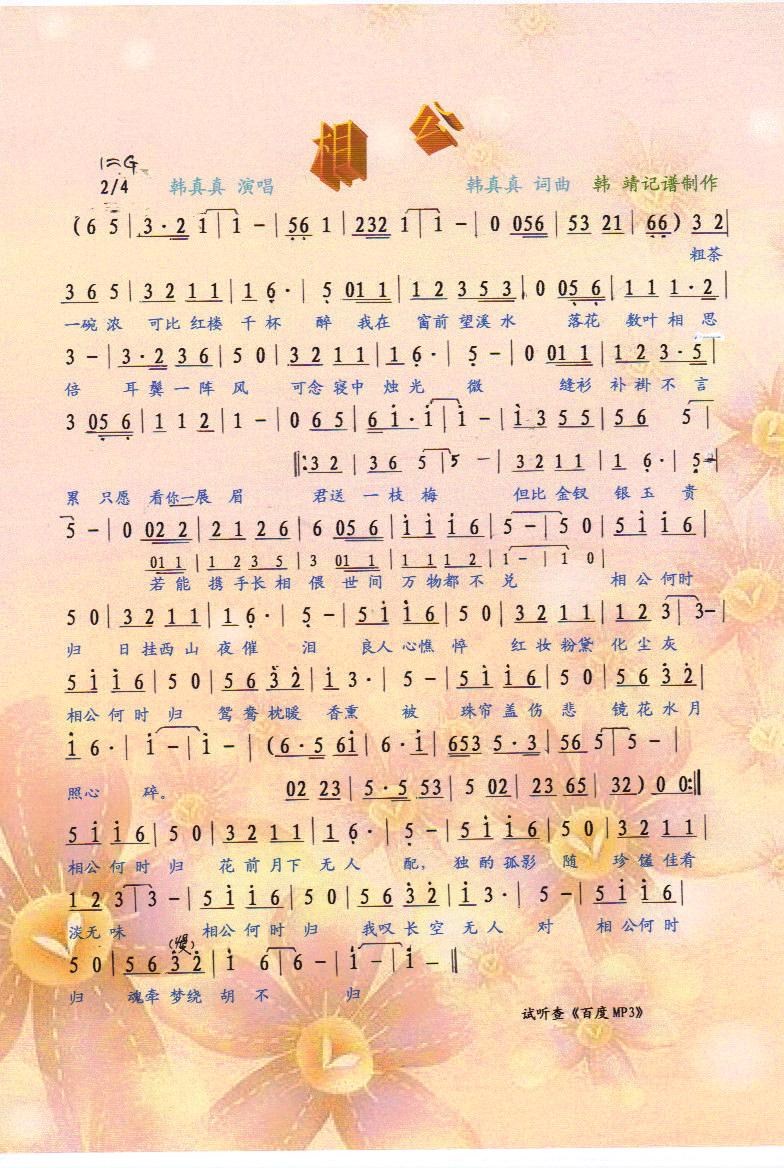 相 公
1=G
2/4 韩真真 演唱 韩真真 词曲 韩 靖记谱制作
(6 5 | 3·2 1 | 1 - | 56 1 | 232 1 | 1 - | 0 056 | 53 21 | 66 ) 3 2 |
粗茶
3 6 5 | 3 2 1 1 | 1 6· | 5 01 1 | 1 2 3 5 3 | 0 05 6 | 1 1 1·2 |
一碗浓 可比红楼千杯 醉 我在 窗前望溪水 落花 数叶相思
3 - | 3·2 3 6 | 5 0 | 3 2 1 1 | 1 6· | 5 - | 0 01 1 | 1 2 3·5 |
倍 耳鬓一阵 风 可念寝中 烛光 微 缝衫 补褂不言
3 05 6 | 1 1 2 | 1 - | 0 6 5 | 6 1·1 | 1 - | 1 3 5 5 | 5 6 5 |
‖:3 2 | 3 6 5 | 5 - | 3 2 1 1 | 1 6· | 5 -
累 只愿 看你一展 眉 君送 一枝梅 但比金钗 银玉 贵
5 - | 0 02 2 | 2 1 2 6 | 6 05 6 | 1 1 1 6 | 5 - | 5 0 | 5 1 1 6 |
01 1 | 1 2 3 5 | 3 01 1 | 1 1 1 2 | 1 - | 1 0 |
若能 携手长相 偎 世间 万物都不 兑 相公何时
5 0 | 3 2 1 1 | 1 6· | 5 - | 5 1 1 6 | 5 0 | 3 2 1 1 | 1 2 3 | 3 - |
归 日挂西山 夜催 泪 良人心憔 悴 红妆粉黛 化尘灰
5 1 1 6 | 5 0 | 5 6 3 2 | 1 3· | 5 - | 5 1 1 6 | 5 0 | 5 6 3 2 |
相公何时 归 鸳鸯枕暖 香熏 被 珠帘盖伤 悲 镜花水月
1 6· | 1 - | 1 - | (6·5 61 | 6·1 | 653 5·3 | 56 5 | 5 - |
照心 碎。 02 23 | 5·5 53 | 5 02 | 23 65 | 32 ) 0 0:‖
5 1 1 6 | 5 0 | 3 2 1 1 | 1 6· | 5 - | 5 1 1 6 | 5 0 | 3 2 1 1 |
相公何时 归 花前月下 无人 配, 独酌孤影 随 珍馐佳肴
1 2 3 | 3 - | 5 1 1 6 | 5 0 | 5 6 3 2 | 1 3· | 5 - | 5 1 1 6 |
淡无味 相公何时 归 我叹长空 无人 对 相公何时
(慢)
5 0 | 5 6 3 2 | 1 6 | 6 - | 1 - | 1 - ‖
归 魂牵梦绕 胡不 归
试听查《百度MP3》